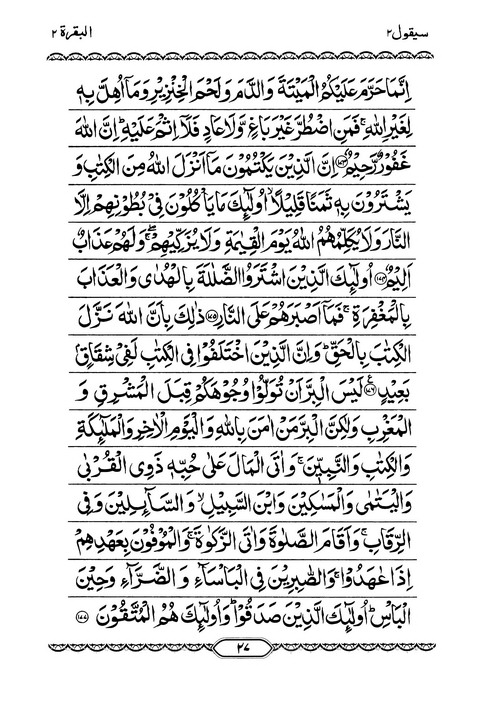 سیقول ۲
البقرة ۲
اِنَّمَا حَرَّمَ عَلَیْكُمُ الْمَیْتَةَ وَالدَّمَ وَلَحْمَ الْخِنْزِیْرِ وَمَاۤ اُهِلَّ بِهٖ
لِغَیْرِ اللّٰهِ ۚ فَمَنِ اضْطُرَّ غَیْرَ بَاغٍ وَّلَا عَادٍ فَلَاۤ اِثْمَ عَلَیْهِ ؕ اِنَّ اللّٰهَ
غَفُوْرٌ رَّحِیْمٌ ﴿۱۷۳﴾ اِنَّ الَّذِیْنَ یَكْتُمُوْنَ مَاۤ اَنْزَلَ اللّٰهُ مِنَ الْكِتٰبِ وَ
یَشْتَرُوْنَ بِهٖ ثَمَنًا قَلِیْلًا ۙ اُولٰٓئِكَ مَا یَاْكُلُوْنَ فِیْ بُطُوْنِهِمْ اِلَّا
النَّارَ وَلَا یُكَلِّمُهُمُ اللّٰهُ یَوْمَ الْقِیٰمَةِ وَلَا یُزَكِّیْهِمْ ۖۚ وَلَهُمْ عَذَابٌ
اَلِیْمٌ ﴿۱۷۴﴾ اُولٰٓئِكَ الَّذِیْنَ اشْتَرَوُا الضَّلٰلَةَ بِالْهُدٰی وَالْعَذَابَ
بِالْمَغْفِرَةِ ۚ فَمَاۤ اَصْبَرَهُمْ عَلَی النَّارِ ﴿۱۷۵﴾ ذٰلِكَ بِاَنَّ اللّٰهَ نَزَّلَ
الْكِتٰبَ بِالْحَقِّ ؕ وَاِنَّ الَّذِیْنَ اخْتَلَفُوْا فِی الْكِتٰبِ لَفِیْ شِقَاقٍۭ
بَعِیْدٍ ﴿۱۷۶﴾ لَیْسَ الْبِرَّ اَنْ تُوَلُّوْا وُجُوْهَكُمْ قِبَلَ الْمَشْرِقِ وَ
الْمَغْرِبِ وَلٰكِنَّ الْبِرَّ مَنْ اٰمَنَ بِاللّٰهِ وَالْیَوْمِ الْاٰخِرِ وَالْمَلٰٓئِكَةِ
وَالْكِتٰبِ وَالنَّبِیّٖنَ ۚ وَاٰتَی الْمَالَ عَلٰی حُبِّهٖ ذَوِی الْقُرْبٰی
وَالْیَتٰمٰی وَالْمَسٰكِیْنَ وَابْنَ السَّبِیْلِ ۙ وَالسَّآئِلِیْنَ وَفِی
الرِّقَابِ ۚ وَاَقَامَ الصَّلٰوةَ وَاٰتَی الزَّكٰوةَ ۚ وَالْمُوْفُوْنَ بِعَهْدِهِمْ
اِذَا عٰهَدُوْا ۚ وَالصّٰبِرِیْنَ فِی الْبَاْسَآءِ وَالضَّرَّآءِ وَحِیْنَ
الْبَاْسِ ؕ اُولٰٓئِكَ الَّذِیْنَ صَدَقُوْا ؕ وَاُولٰٓئِكَ هُمُ الْمُتَّقُوْنَ ﴿۱۷۷﴾
۲۷